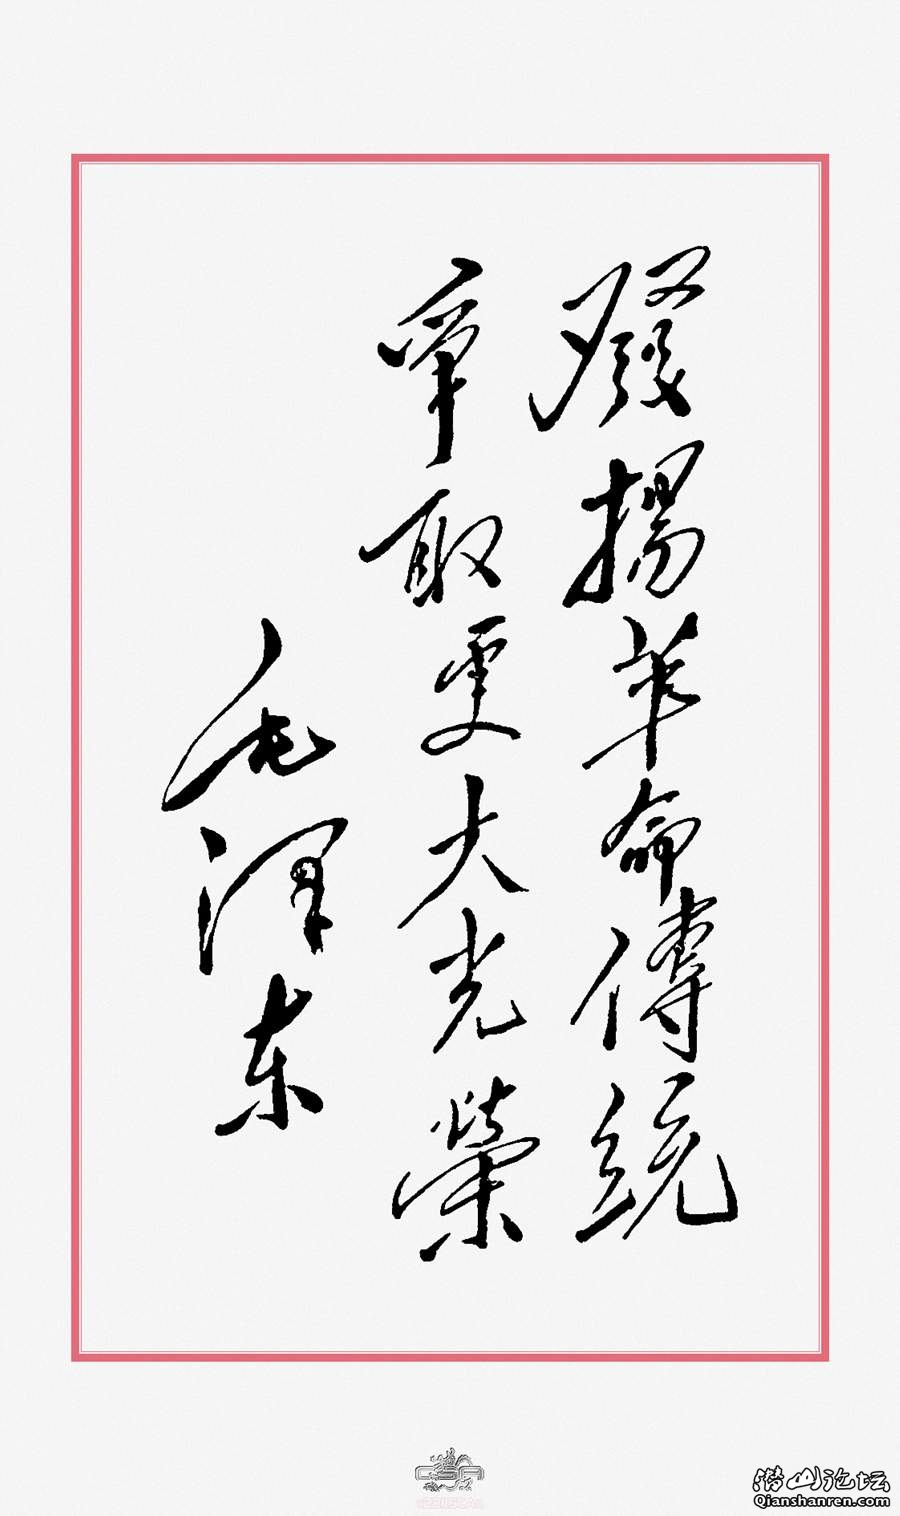 發揚革命傳統
爭取更大光榮
毛泽东
潜山论坛
Qianshanren.com